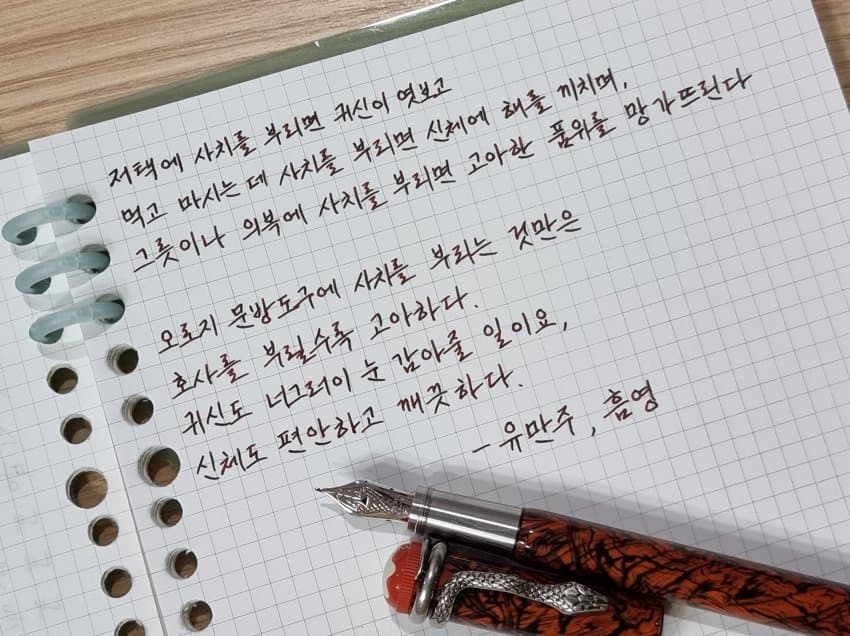 저택에 사치를 부리면 귀신이 엿보고
먹고 마시는 데 사치를 부리면 신체에 해를 끼치며,
그릇이나 의복에 사치를 부리면 고아한 품위를 망가뜨린다
오로지 문방도구에 사치를 부리는 것만은
호사를 부릴수록 고아하다.
귀신도 너그러이 눈 감아줄 일이요,
신체도 편안하고 깨끗하다.
- 유만주, 흠영